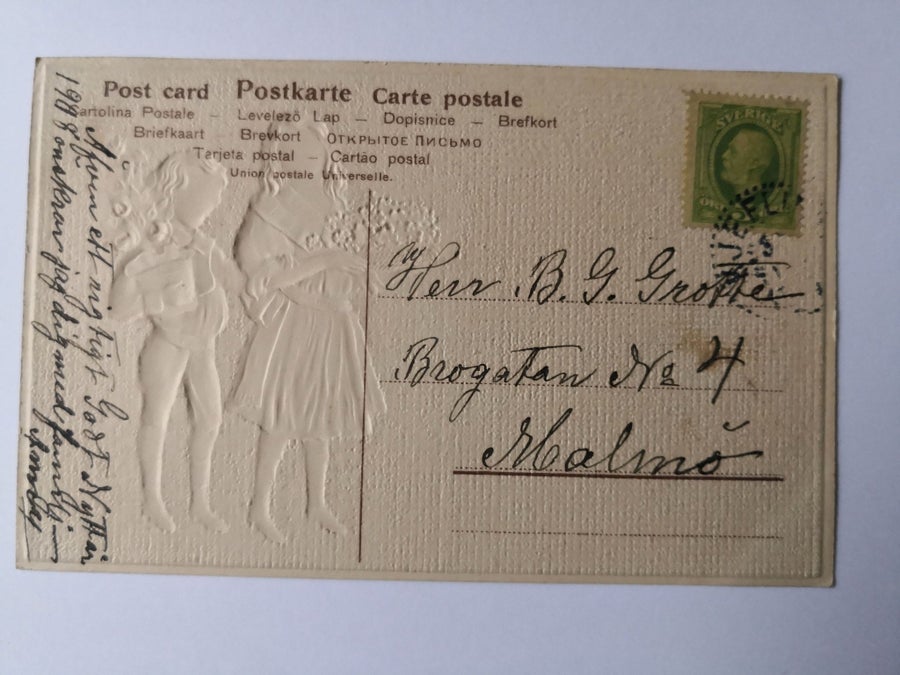 Post card Postkarte Carte postale
Cartolina Postale – Levelező Lap – Dopisnice – Brefkort
Briefkaart Brevkort ОТКРЫТОЕ ПИСЬМО
Tarjeta postal – Cartão postal
Union postale Universelle.
SVERIGE
Herr B. G. Grotte
Brogatan No 4
Malmö
ett rigtigt Godt Nyttår
1908 önskar jag dig med familj